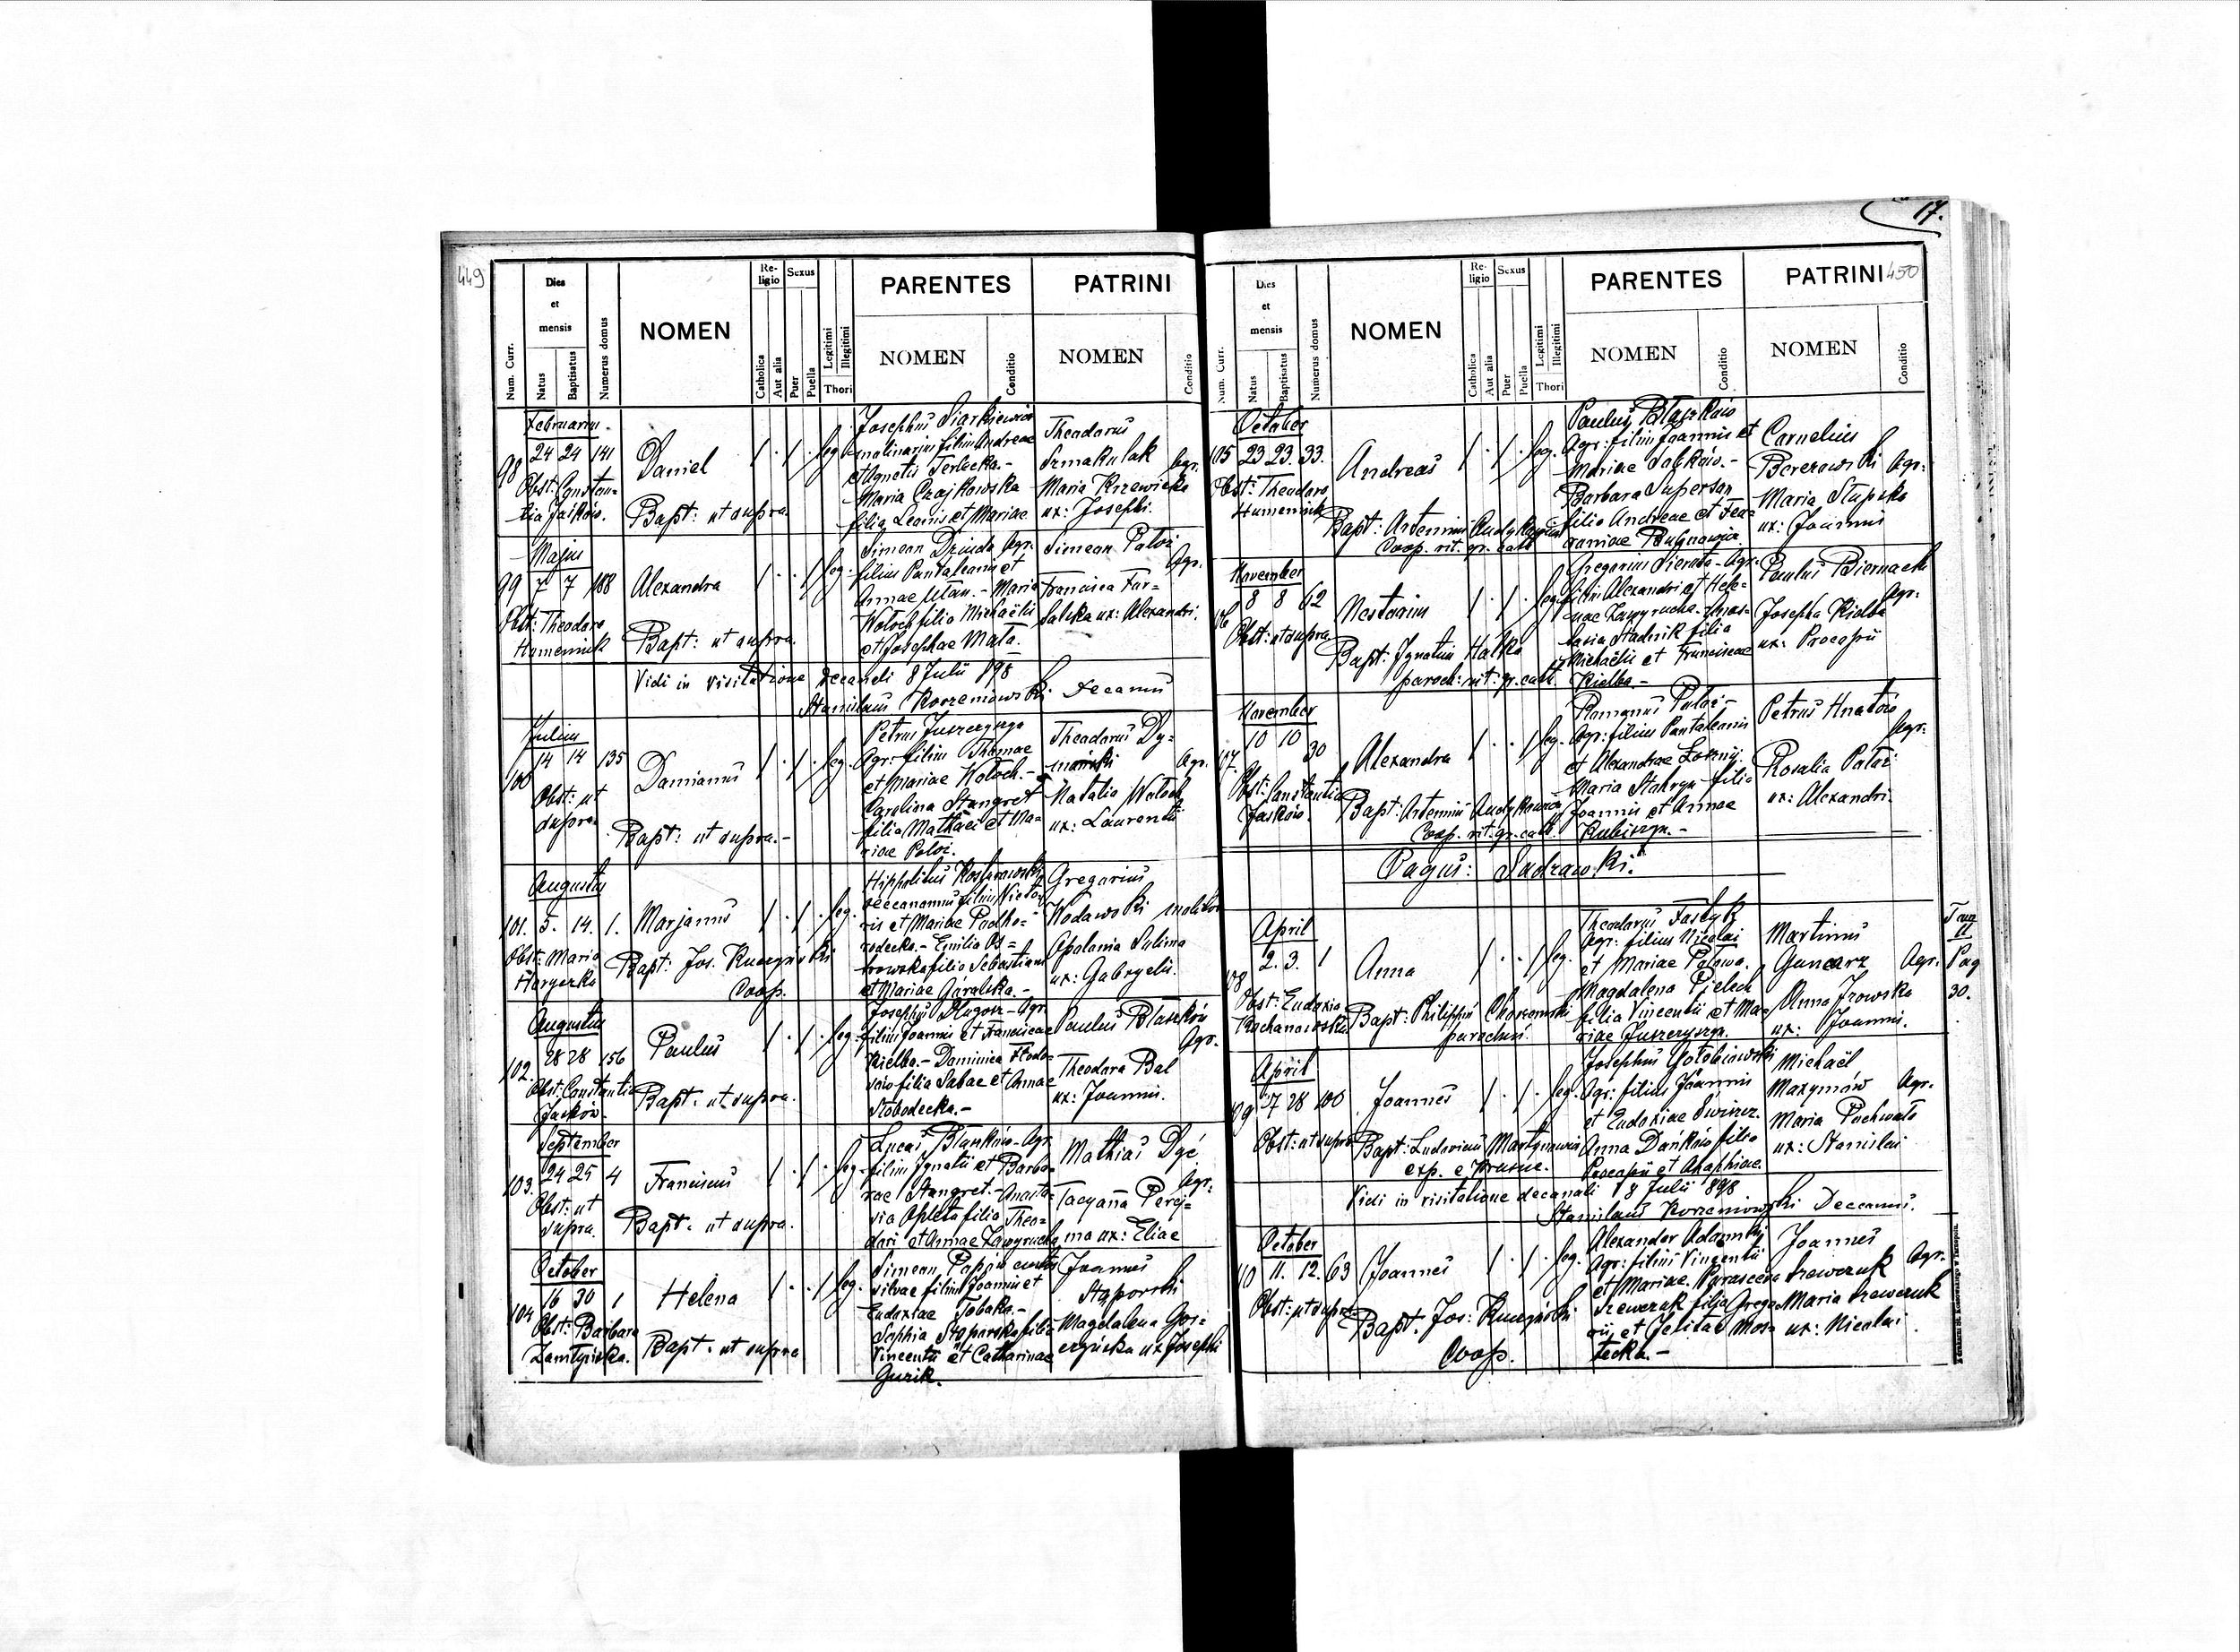 449
Num. Curr.
Dies et mensis
Natus
Baptisatus
Numerus domus
NOMEN
Religio
Catholica
Aut alia
Sexus
Puer
Puella
Legitimi
Illegitimi
Thori
PARENTES
NOMEN
Conditio
PATRINI
NOMEN
Conditio
Februarius
98 24 24 141 Daniel leg.
Obst: Constan=
tia Jaśków.
Bapt: ut supra.
Josephus Siarkiewicz
molinarius filius Andreae
et Agnetis Terlecka.-
Maria Czajkowska
filia Leonis et Mariae
Theodorus
Szmakulak Agr.
Maria Krzewicka
ux: Josephi.
Majus
99 7 7 188 Alexandra leg.
Obst: Theodora
Humeniuk
Bapt: ut supra.
Simeon Dziuda Agr.
filius Pantaleonis et
Annae Utan.- Maria
Wołoch filia Michaëlis
et Josephae Mała.
Simeon Patoi
Agr.
Francisca
ux: Alexandri.
Vidi in visitatione decanali 8 Julii 898
Stanislaus Korzeniowski Decanus
Julius
100 14 14 135 Damianus leg.
Obst: ut
supra
Bapt: ut supra.-
Petrus Juszczyszyn
Agr: filius Thomae
et Mariae Wołoch.-
Carolina Stangret
filia Mathaei et Ma=
riae
Theodorus Dy=
mański Agr.
Natalia Wołoch
ux: Laurentii
Augustus
101. 5. 14. 1. Marjanus leg.
Obst: Maria
Bapt: Jos. Kuczyński
Coop.
Hippolitus
oeconomus filius Victo=
ris et Mariae Podho=
rodecka.- Emilia Os=
trowska filia Sebastiani
et Mariae Góralska.-
Gregorius
Wodawski molitor
Apolonia Sulima
ux: Gabryelis.
Augustus
102. 28 28 156 Paulus leg.
Obst: Constantia
Jaśków.
Bapt. ut supra.
Josephus Długosz - Agr.
filius Joannis et Franciscae
Kiełba.- Dominica
filia Sabae et Annae
Słobodecka.-
Paulus Błaszków
Agr.
Theodora Bal
ux: Joannis.
September
103. 24 25 4 Franciscus leg.
Obst: ut
supra.
Bapt. ut supra.
Lucas Błaszków - Agr.
filius Ignatii et Barba=
rae Stangret.- Anasta=
sia filia Theo=
dori et Annae Zawyrucha
Mathias Dyć
Agr.
Tacyanna Perej=
ma ux: Eliae
October
104 16 30 1 Helena leg.
Obst: Barbara
Bapt. ut supra
Simeon custos
silvae filius Joannis et
Eudoxiae Tabaka.-
Sophia Stąporska filia
Vincentii et Catharinae
Guzik.
Joannes
Stąporski
Magdalena Gos=
ux Josephi
17.
450
Num. Curr.
Dies et mensis
Natus
Baptisatus
Numerus domus
NOMEN
Religio
Catholica
Aut alia
Sexus
Puer
Puella
Legitimi
Illegitimi
Thori
PARENTES
NOMEN
Conditio
PATRINI
NOMEN
Conditio
October
105 23 23. 33. Andreas leg.
Obst: Theodora
Humeniuk
Bapt: Artemius
Coop. rit. gr. cath
Paulus Błaszków
Agr: filius Joannis et
Mariae
Barbara Superson
filia Andreae et Fra=
Cornelius
Berezowski Agr.
Maria Słupska
ux: Joannis
November
106 8 8 62 Nestorius leg.
Obst: ut supra
Bapt: Ignatius Halka
paroch: rit: gr. cath.
Gregorius Sierota - Agr.
filius Alexandri et Hele=
nae Zawyrucha. Anas=
tasia Stadnik filia
Michaëlis et Franciscae
Kiełba.-
Paulus Biernacki
Agr.
Josepha Kiełba
ux: Procopii
November
107. 10 10 30 Alexandra leg.
Obst: Constantia
Jaśków.
Bapt: Artemius
Coop. rit. gr. cath.
Romanus
Agr: filius Pantaleonis
et Alexandrae
Maria filia
Joannis et Annae
Petrus Hnatów
Agr.
Rosalia
ux: Alexandri.
Pagus: Sudzawki.
April
108 2. 3. 1 Anna leg.
Obst: Eudoxia
Bapt: Philippus
parochus.
Theodorus
Agr: filius Nicolai
et Mariae
Magdalena Pielech
filia Vincentii et Ma=
riae Juszczyszyn.
Martinus
Guncarz Agr.
Anna
ux: Joannis.
Tom
II
Pag
30.
April
109 27 28 100 Joannes leg.
Obst: ut supra
Bapt: Ludovicus Martynowicz
exp. e
Josephus
Agr: filius Joannis
et Eudoxiae
Anna Dańków filia
Procopii et Agaphiae.
Michaël
Maxymów Agr.
Maria Pochwała
ux: Stanislai
Vidi in visitatione decanali 8 Julii 898
Stanislaus Korzeniowski Decanus.
October
110 11. 12. 63 Joannes leg.
Obst: ut supra
Bapt. Jos: Kuczyński
Coop.
Alexander Adamski
Agr: filius Vincentii
et Mariae. Parasceva
Szewczuk filia Grego=
rii et Mos=
tecka.-
Joannes
Szewczuk Agr.
Maria Szewczuk
ux: Nicolai